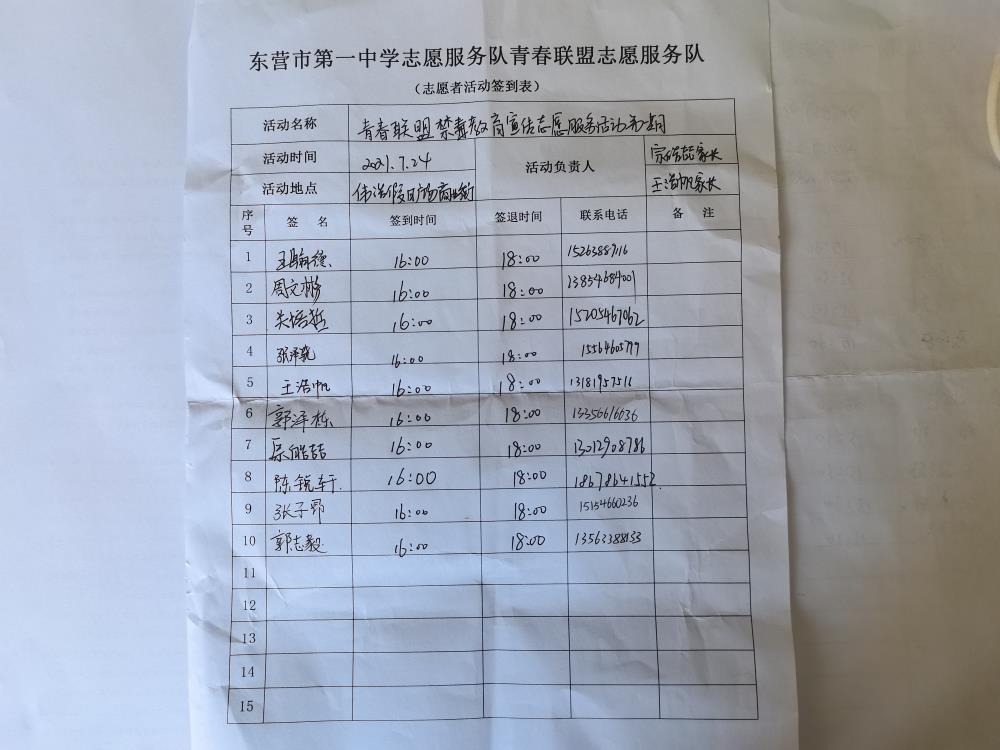 东营市第一中学志愿服务队青春联盟志愿服务队
(志愿者活动签到表)
活动名称 青春联盟禁毒教育宣传志愿服务活动第期
活动时间 2021.7.24 活动负责人 宗皓喆家长
活动地点 广场商业街 王浩帆家长
序号 签 名 签到时间 签退时间 联系电话 备 注
1 16:00 18:00
2 周文彬 16:00 18:00 13854684001
3 朱培哲 16:00 18:00 15205467062
4 16:00 18:00
5 王浩帆 16:00 18:00 13181957511
6 郭泽栋 16:00 18:00 13356616036
7 宗皓喆 16:00 18:00 13012908786
8 陈锐轩 16:00 18:00 18678641552
9 张子昂 16:00 18:00 15154660236
10 郭志毅 16:00 18:00 13562388133
11
12
13
14
15